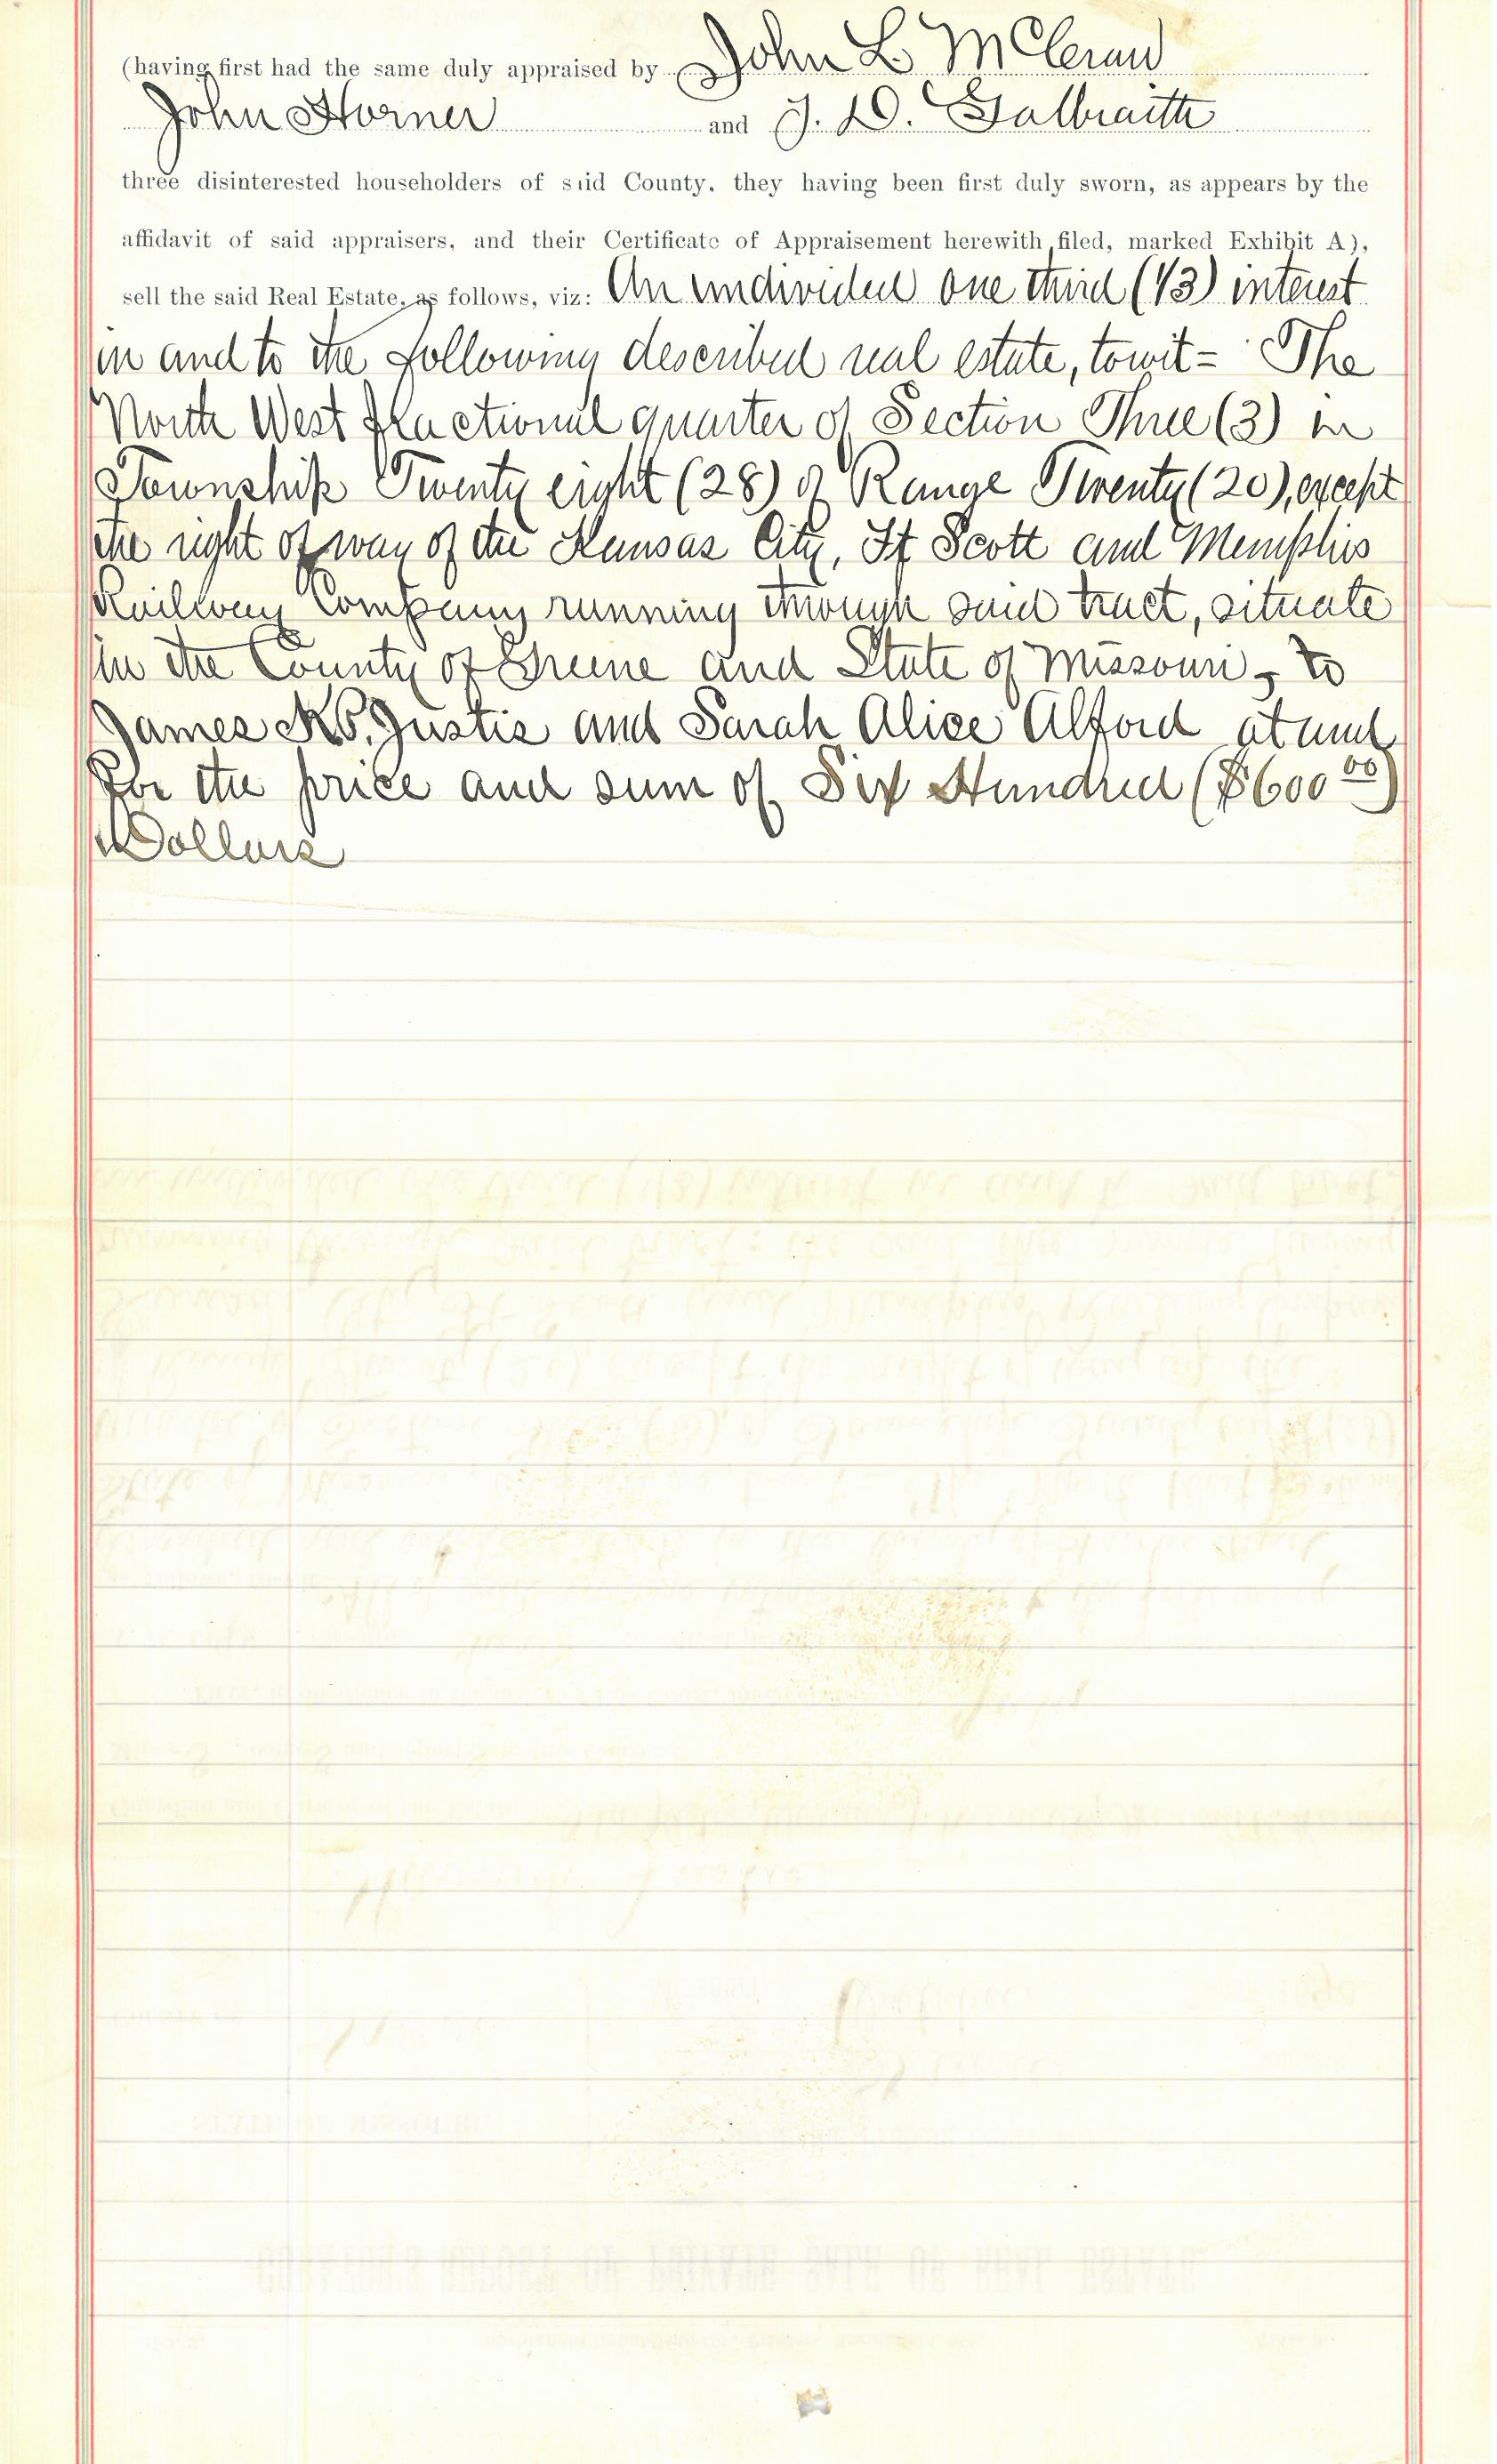 (having first had the same duly appraised by John L McCraw
John Horner and J. D. Galbraith
three disinterested householders of said County, they having been first duly sworn, as appears by the
affidavit of said appraisers, and their Certificate of Appraisement herewith filed, marked Exhibit A),
sell the said Real Estate, as follows, viz: An undivided one third (1/3) interest
in and to the following described real estate, towit = The
North West fractional quarter of Section Three (3) in
Township Twenty eight (28) of Range Twenty (20), except
the right of way of the Kansas City, Ft Scott and Memphis
Railway Company running through said tract, situate
in the County of Greene and State of Missouri, to
James K P. Justis and Sarah Alice Alford at and
for the price and sum of Six Hundred ($600 00)
Dollars